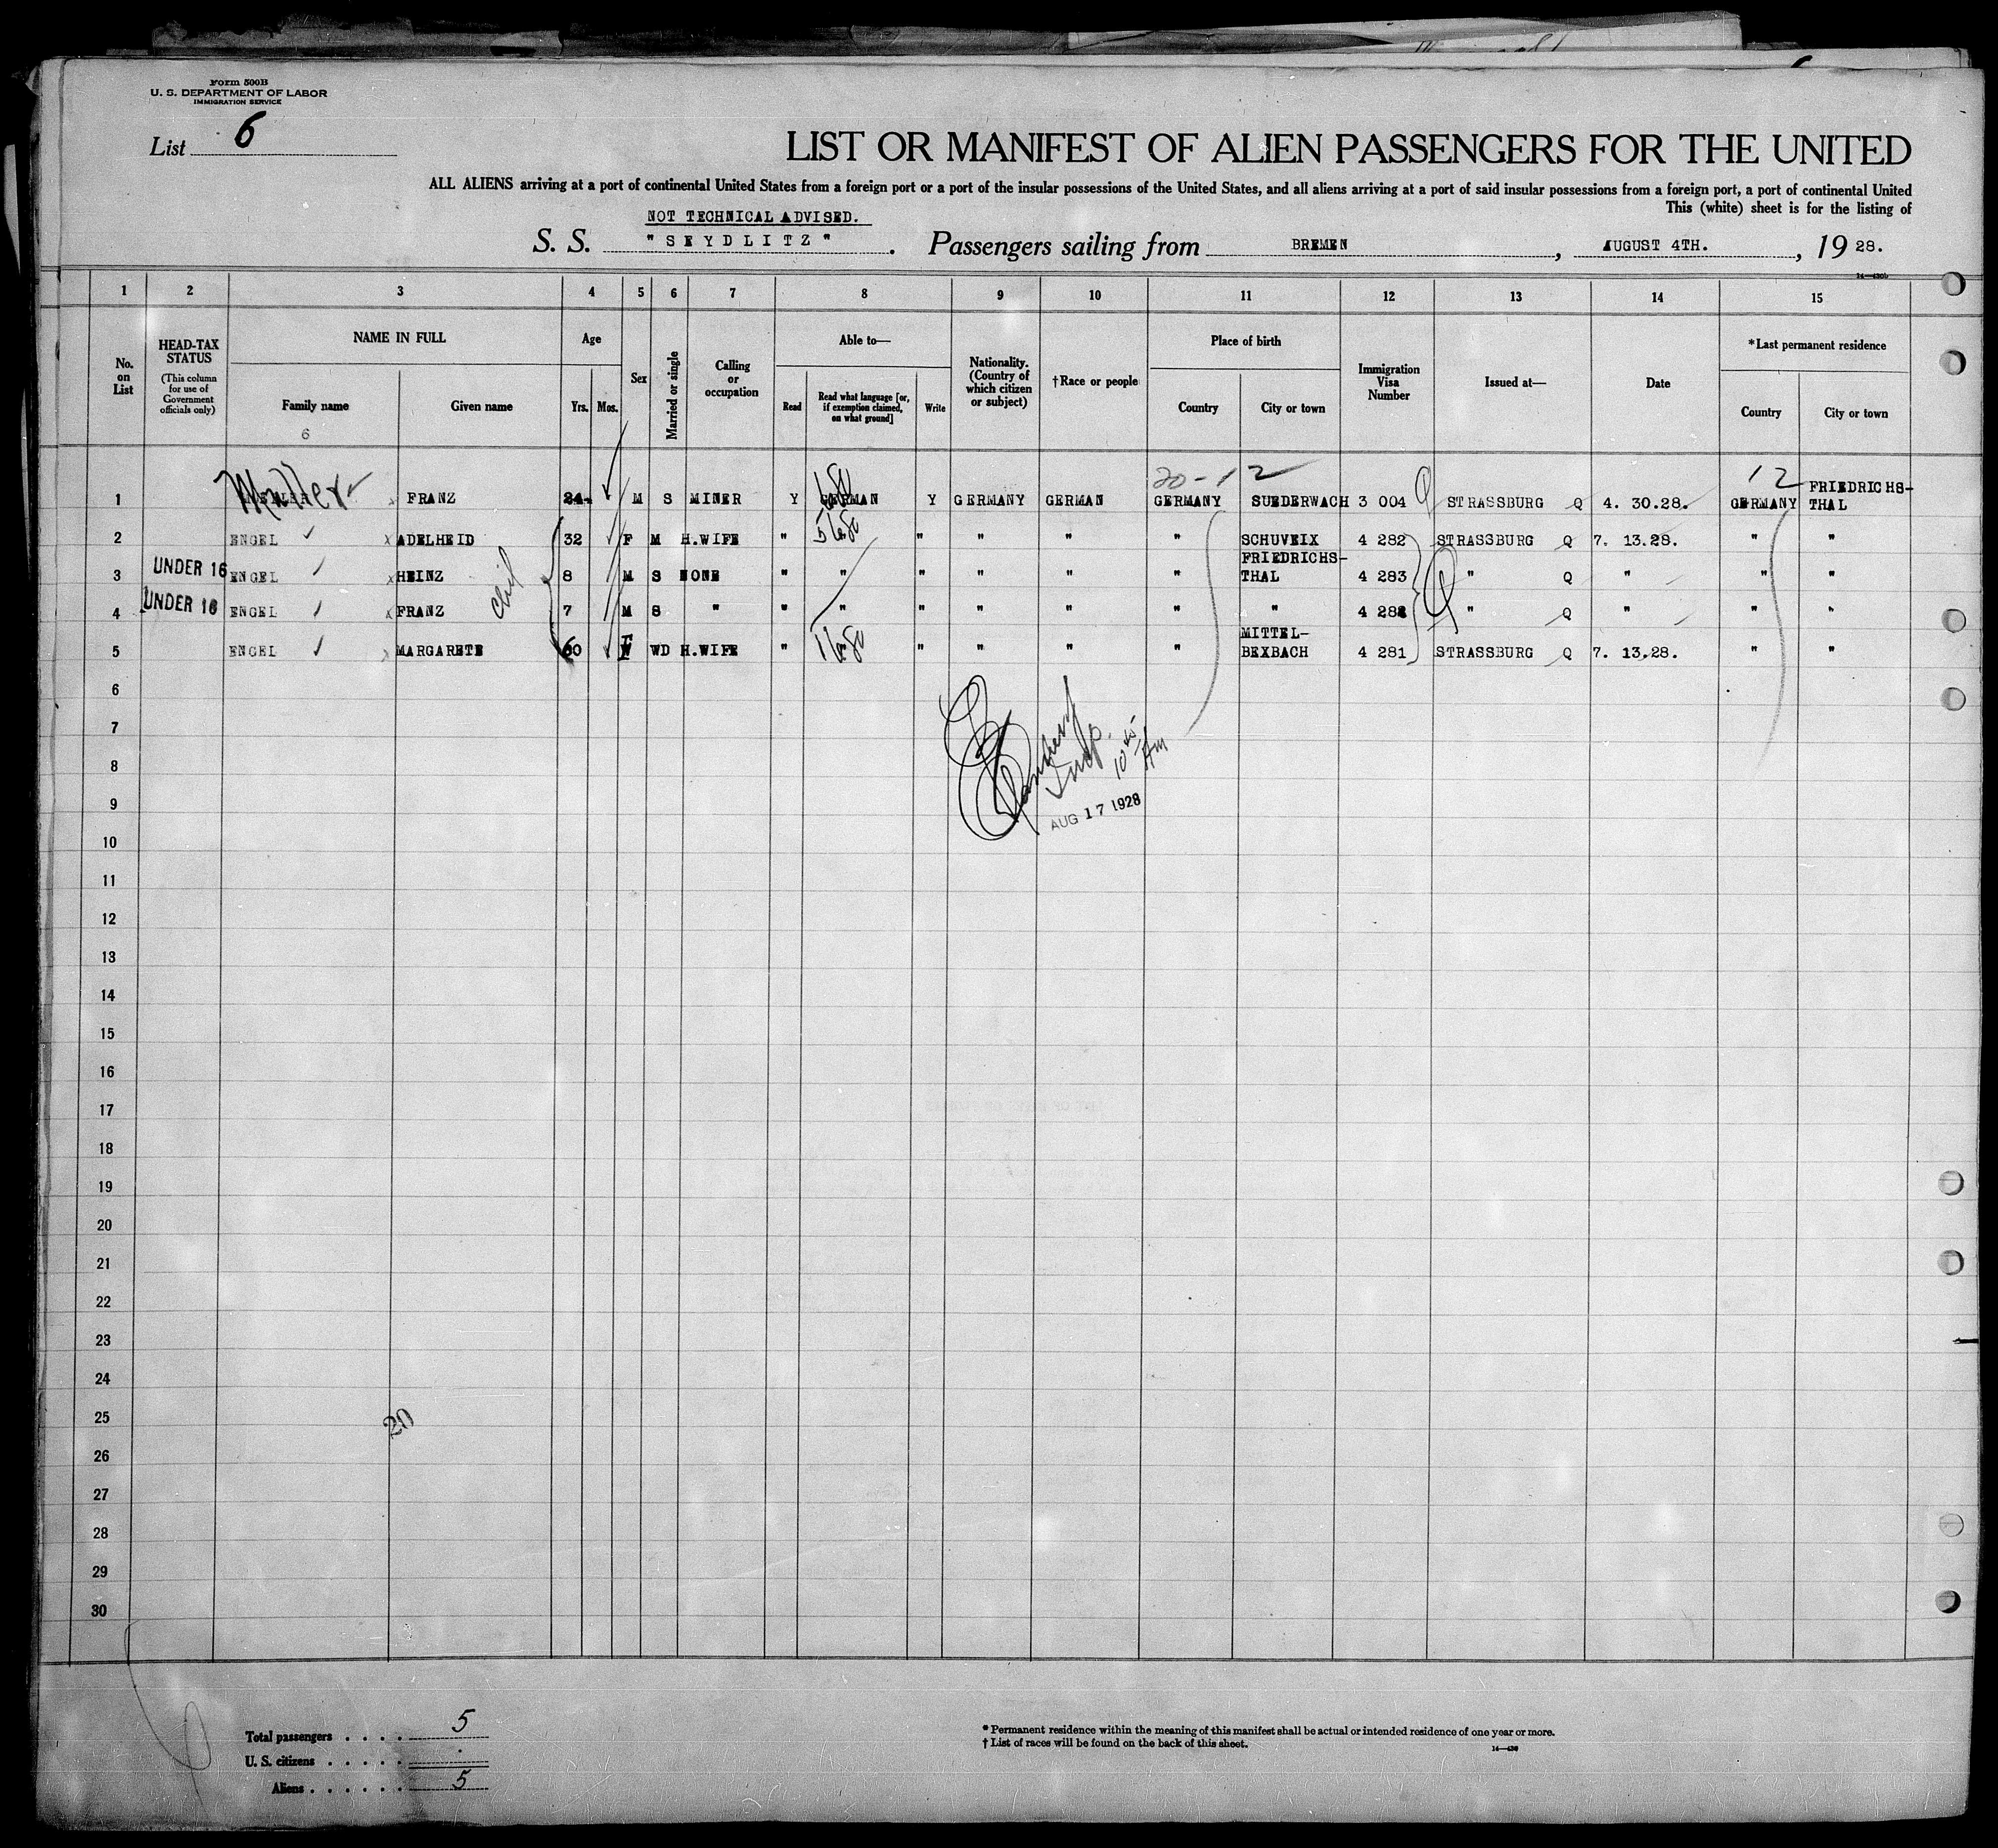 Form 500B
U. S. DEPARTMENT OF LABOR
IMMIGRATION SERVICE
List 6
LIST OR MANIFEST OF ALIEN PASSENGERS FOR THE UNITED
ALL ALIENS arriving at a port of continental United States from a foreign port or a port of the insular possessions of the United States, and all aliens arriving at a port of said insular possessions from a foreign port, a port of continental United
This (white) sheet is for the listing of
NOT TECHNICAL ADVISED.
S. S. "SEYDLITZ". Passengers sailing from BREMEN, AUGUST 4TH., 19 28.
1 2 3 4 5 6 7 8 9 10 11 12 13 14 15
No. on List
HEAD-TAX STATUS (This column for use of Government officials only)
NAME IN FULL
Family name Given name
6
Age
Yrs. Mos.
Sex
Married or single
Calling or occupation
Able to—
Read Read what language [or, if exemption claimed, on what ground] Write
Nationality. (Country of which citizen or subject)
†Race or people
Place of birth
Country City or town
Immigration Visa Number
Issued at—
Date
*Last permanent residence
Country City or town
20-12 12
1 Muller FRANZ 24 M S MINER Y GERMAN Y GERMANY GERMAN GERMANY SUEDERWACH 3 004 STRASSBURG Q 4. 30.28. GERMANY FRIEDRICHS-THAL
2 ENGEL ADELHEID 32 F M H.WIFE " " " " " SCHUVEIX 4 282 STRASSBURG Q 7. 13.28. " "
3 UNDER 16 ENGEL HEINZ 8 M S NONE " " " " " " FRIEDRICHS-THAL 4 283 " Q " " "
4 UNDER 16 ENGEL FRANZ 7 M S " " " " " " " " " Q " " "
5 ENGEL MARGARETE 60 F WD H.WIFE " " " " " MITTEL-BEXBACH 4 281 STRASSBURG Q 7. 13.28. " "
6
7
8
Insp.
10 45 AM
AUG 17 1928
9
10
11
12
13
14
15
16
17
18
19
20
21
22
23
24
25
20
26
27
28
29
30
Total passengers . . . . 5
U. S. citizens . . . . .
Aliens . . . . . . 5
* Permanent residence within the meaning of this manifest shall be actual or intended residence of one year or more.
† List of races will be found on the back of this sheet.